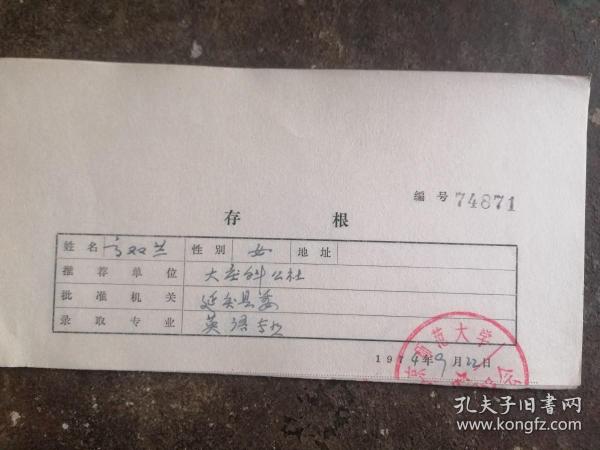 编号 74871
存 根
姓名 高双兰 性别 女 地址
推荐单位 大庄科公社
批准机关 延庆县委
录取专业 英语专业
1974年9月22日
师范大学
孔夫子旧书网
www.kongfz.com